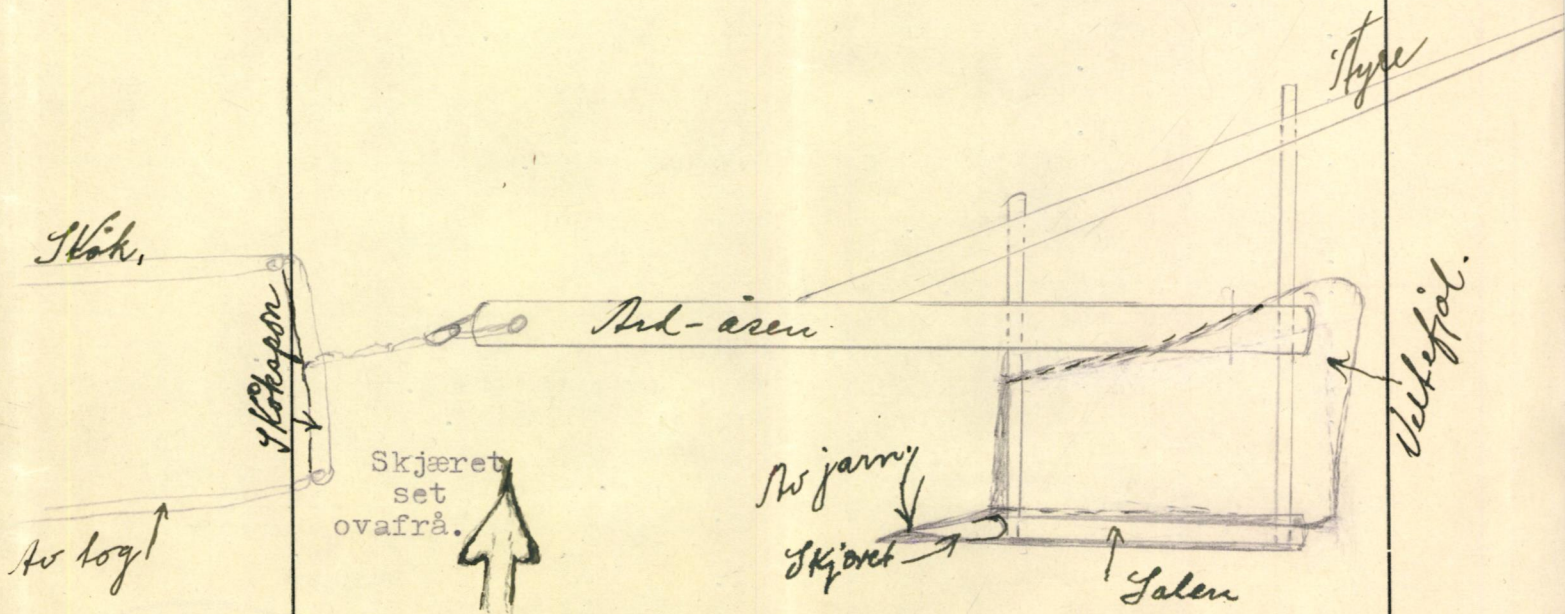 Styre
Skòk.
Skòkspon
Ard-åsen
Veltefjøl.
Skjæret
set
ovafrå.
Av jarn
Av tog
Skjæret
Salen